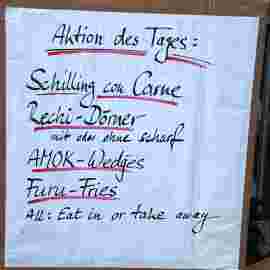 Aktion des Tages:
Schilling con Carne
Rechi-Dörner
mit oder ohne scharf
AMOK-Wedges
Furu-Fries
All: Eat in or take away